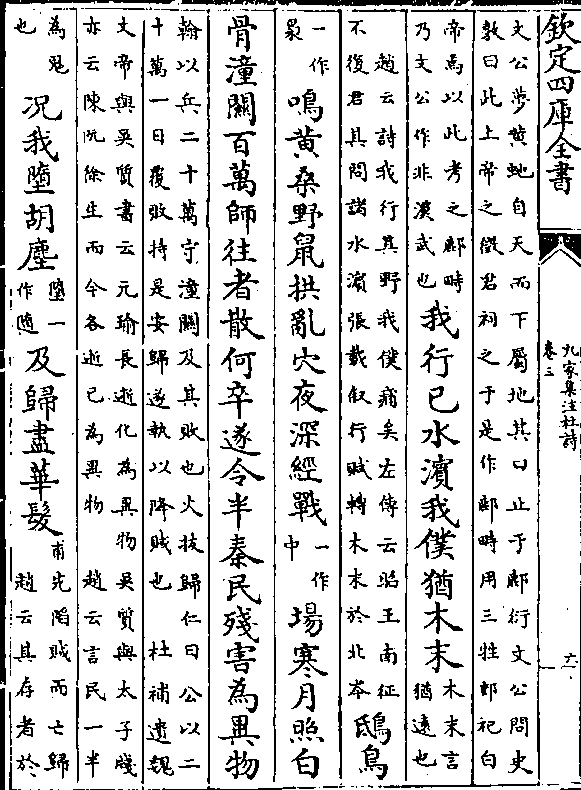 欽定四庫全書
九家集注杜詩
卷三
六
文公夢黄虵自天而下屬地其口止于鄜衍文公問史
敦曰此上帝之徵君祠之于是作鄜畤用三牲郊祀白
帝焉以此考之鄜畤
乃文公作非漢武也
我行已水濱我僕猶木末
木末言
猶遠也
趙云詩我行其野我僕痡矣左傳云昭王南征
不復君其問諸水濱張載叙行賦轉木末於北岑
鴟鳥
一作
梟
鳴黄桑野鼠拱亂穴夜深經戰
一作
中
場寒月照白
骨潼關百萬師往者散何卒遂令半秦民殘害為異物
翰以兵二十萬守潼關及其敗也火拔歸仁曰公以二
十萬一日覆敗持是安歸遂執以降賊也 杜補遺魏
文帝與吳質書云元瑜長逝化為異物吳質與太子牋
亦云陳阮徐生而今各逝已為異物 趙云言民一半
為鬼
也
況我墮胡塵
墮一
作隨
及歸盡華髮
甫先陷賊而亡歸
趙云其存者於